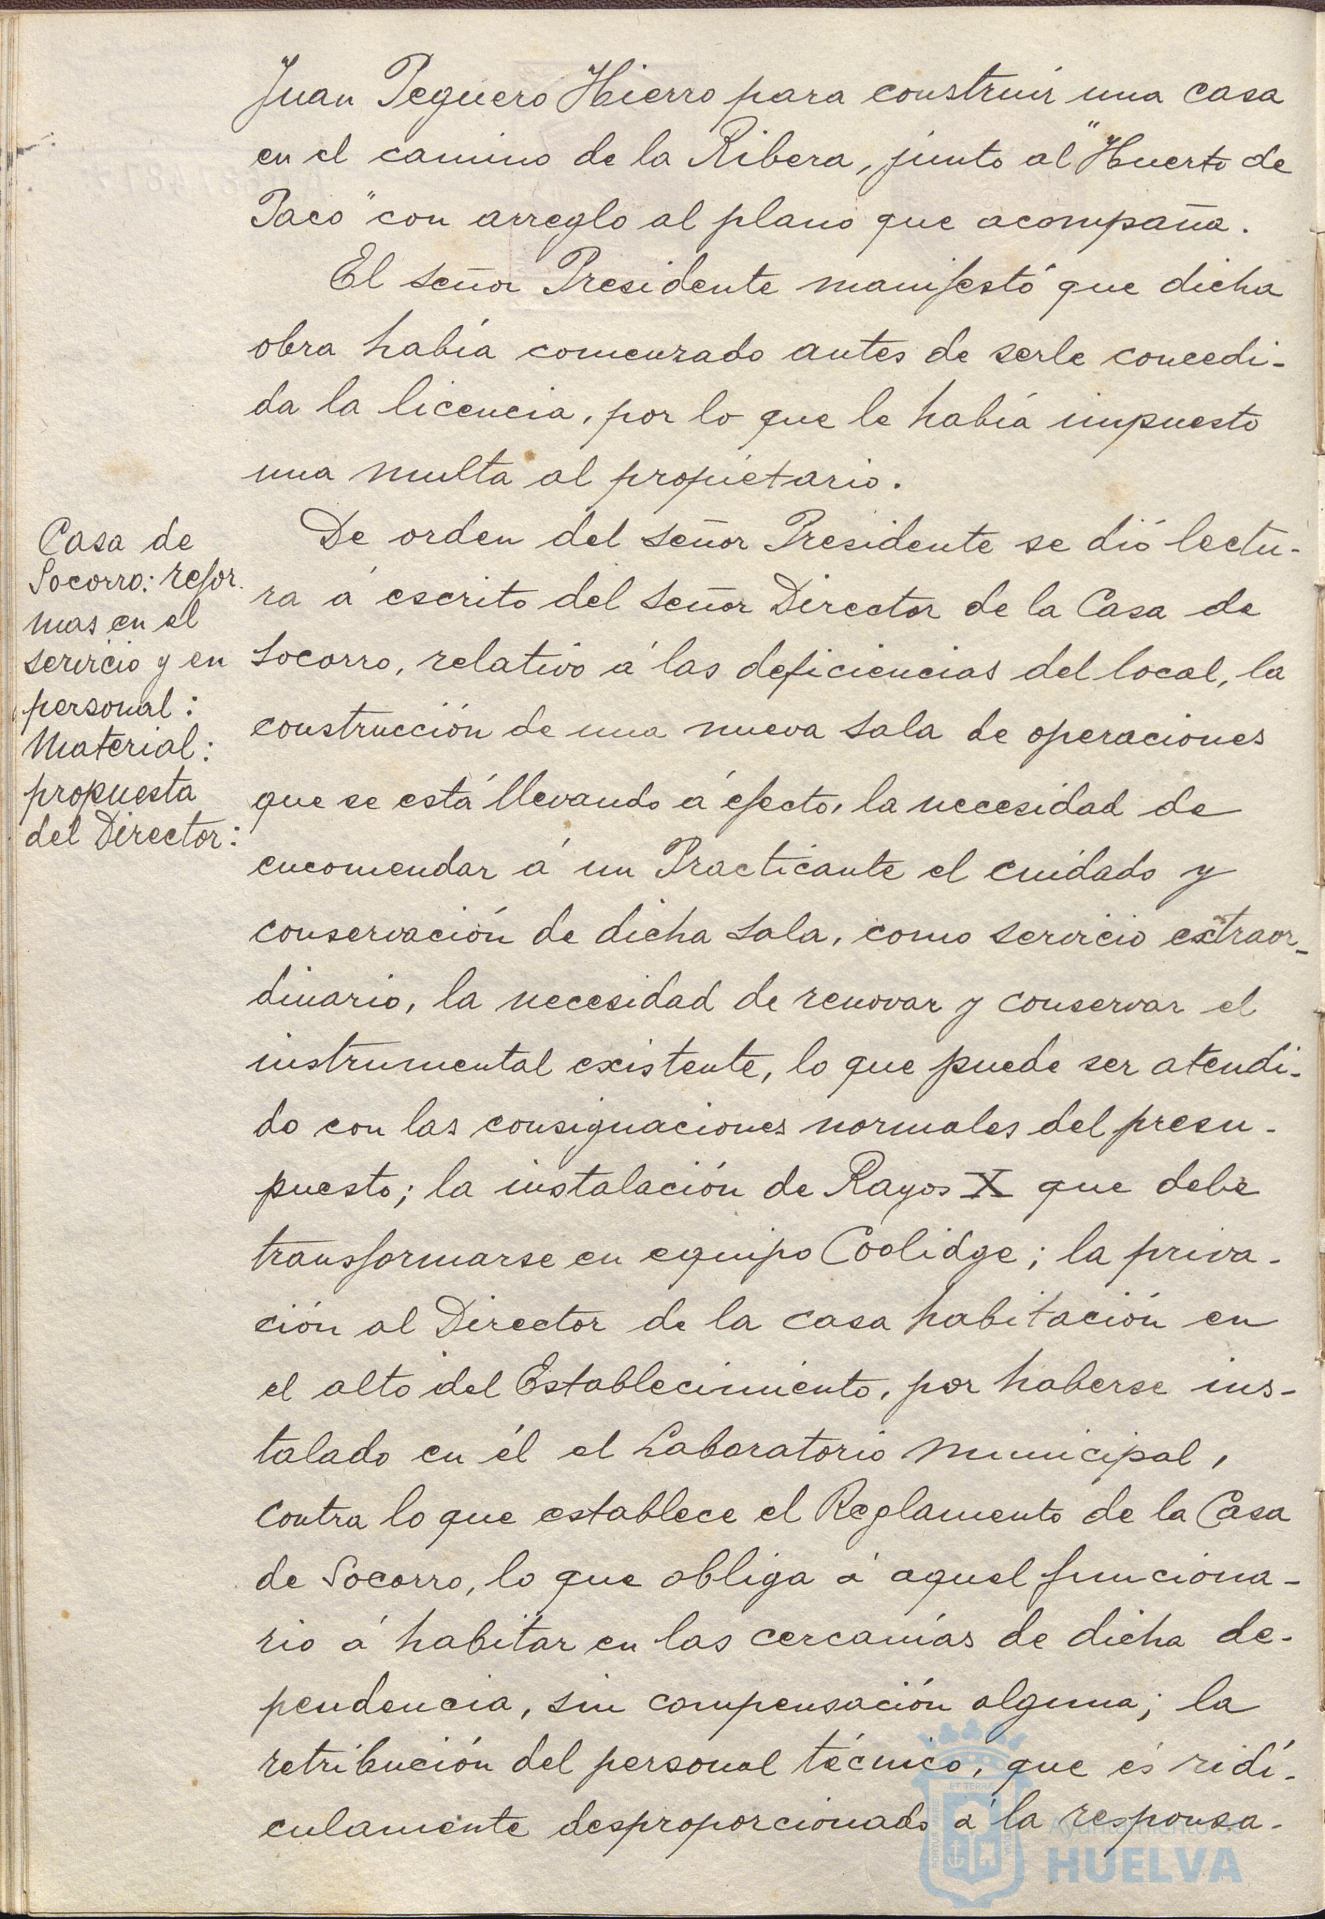 Juan Peguero Hierro para construir una casa
en el camino de la Ribera, junto al "Huerto de
Paco" con arreglo al plano que acompaña.
El señor Presidente manifestó que dicha
obra había comenzado antes de serle concedi-
da la licencia, por lo que le había impuesto
una multa al propietario.
Casa de
Socorro: refor-
mas en el
servicio y en
personal:
Material:
propuesta
del Director:
De orden del señor Presidente se dió lectu-
ra á escrito del señor Director de la Casa de
Socorro, relativo á las deficiencias del local, la
construcción de una nueva sala de operaciones
que se está llevando á efecto, la necesidad de
encomendar á un Practicante el cuidado y
conservación de dicha sala, como servicio extraor-
dinario, la necesidad de renovar y conservar el
instrumental existente, lo que puede ser atendi-
do con las consignaciones normales del presu-
puesto; la instalación de Rayos X que debe
transformarse en equipo Coolidge; la priva-
ción al Director de la casa habitación en
el alto del Establecimiento, por haberse ins-
talado en él el Laboratorio Municipal,
contra lo que establece el Reglamento de la Casa
de Socorro, lo que obliga á aquel funciona-
rio á habitar en las cercanías de dicha de-
pendencia, sin compensación alguna; la
retribución del personal técnico, que és ridí-
culamente desproporcionado á la responsa-
Ayuntamiento de
HUELVA